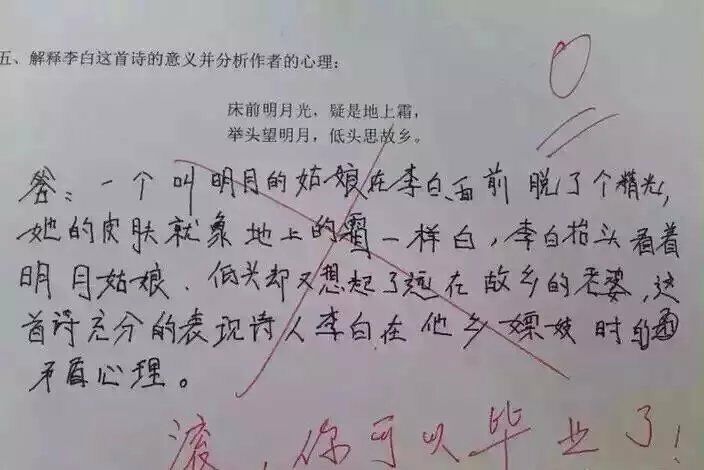 五、解释李白这首诗的意义并分析作者的心理:
床前明月光，疑是地上霜，
举头望明月，低头思故乡。
答：一个叫明月的姑娘在李白面前脱了个精光，
她的皮肤就象地上的霜一样白，李白抬头看着
明月姑娘．低头却又想起了远在故乡的老婆，这
首诗充分的表现诗人李白在他乡嫖妓时的
矛盾心理。
0
滚，你可以毕业了！